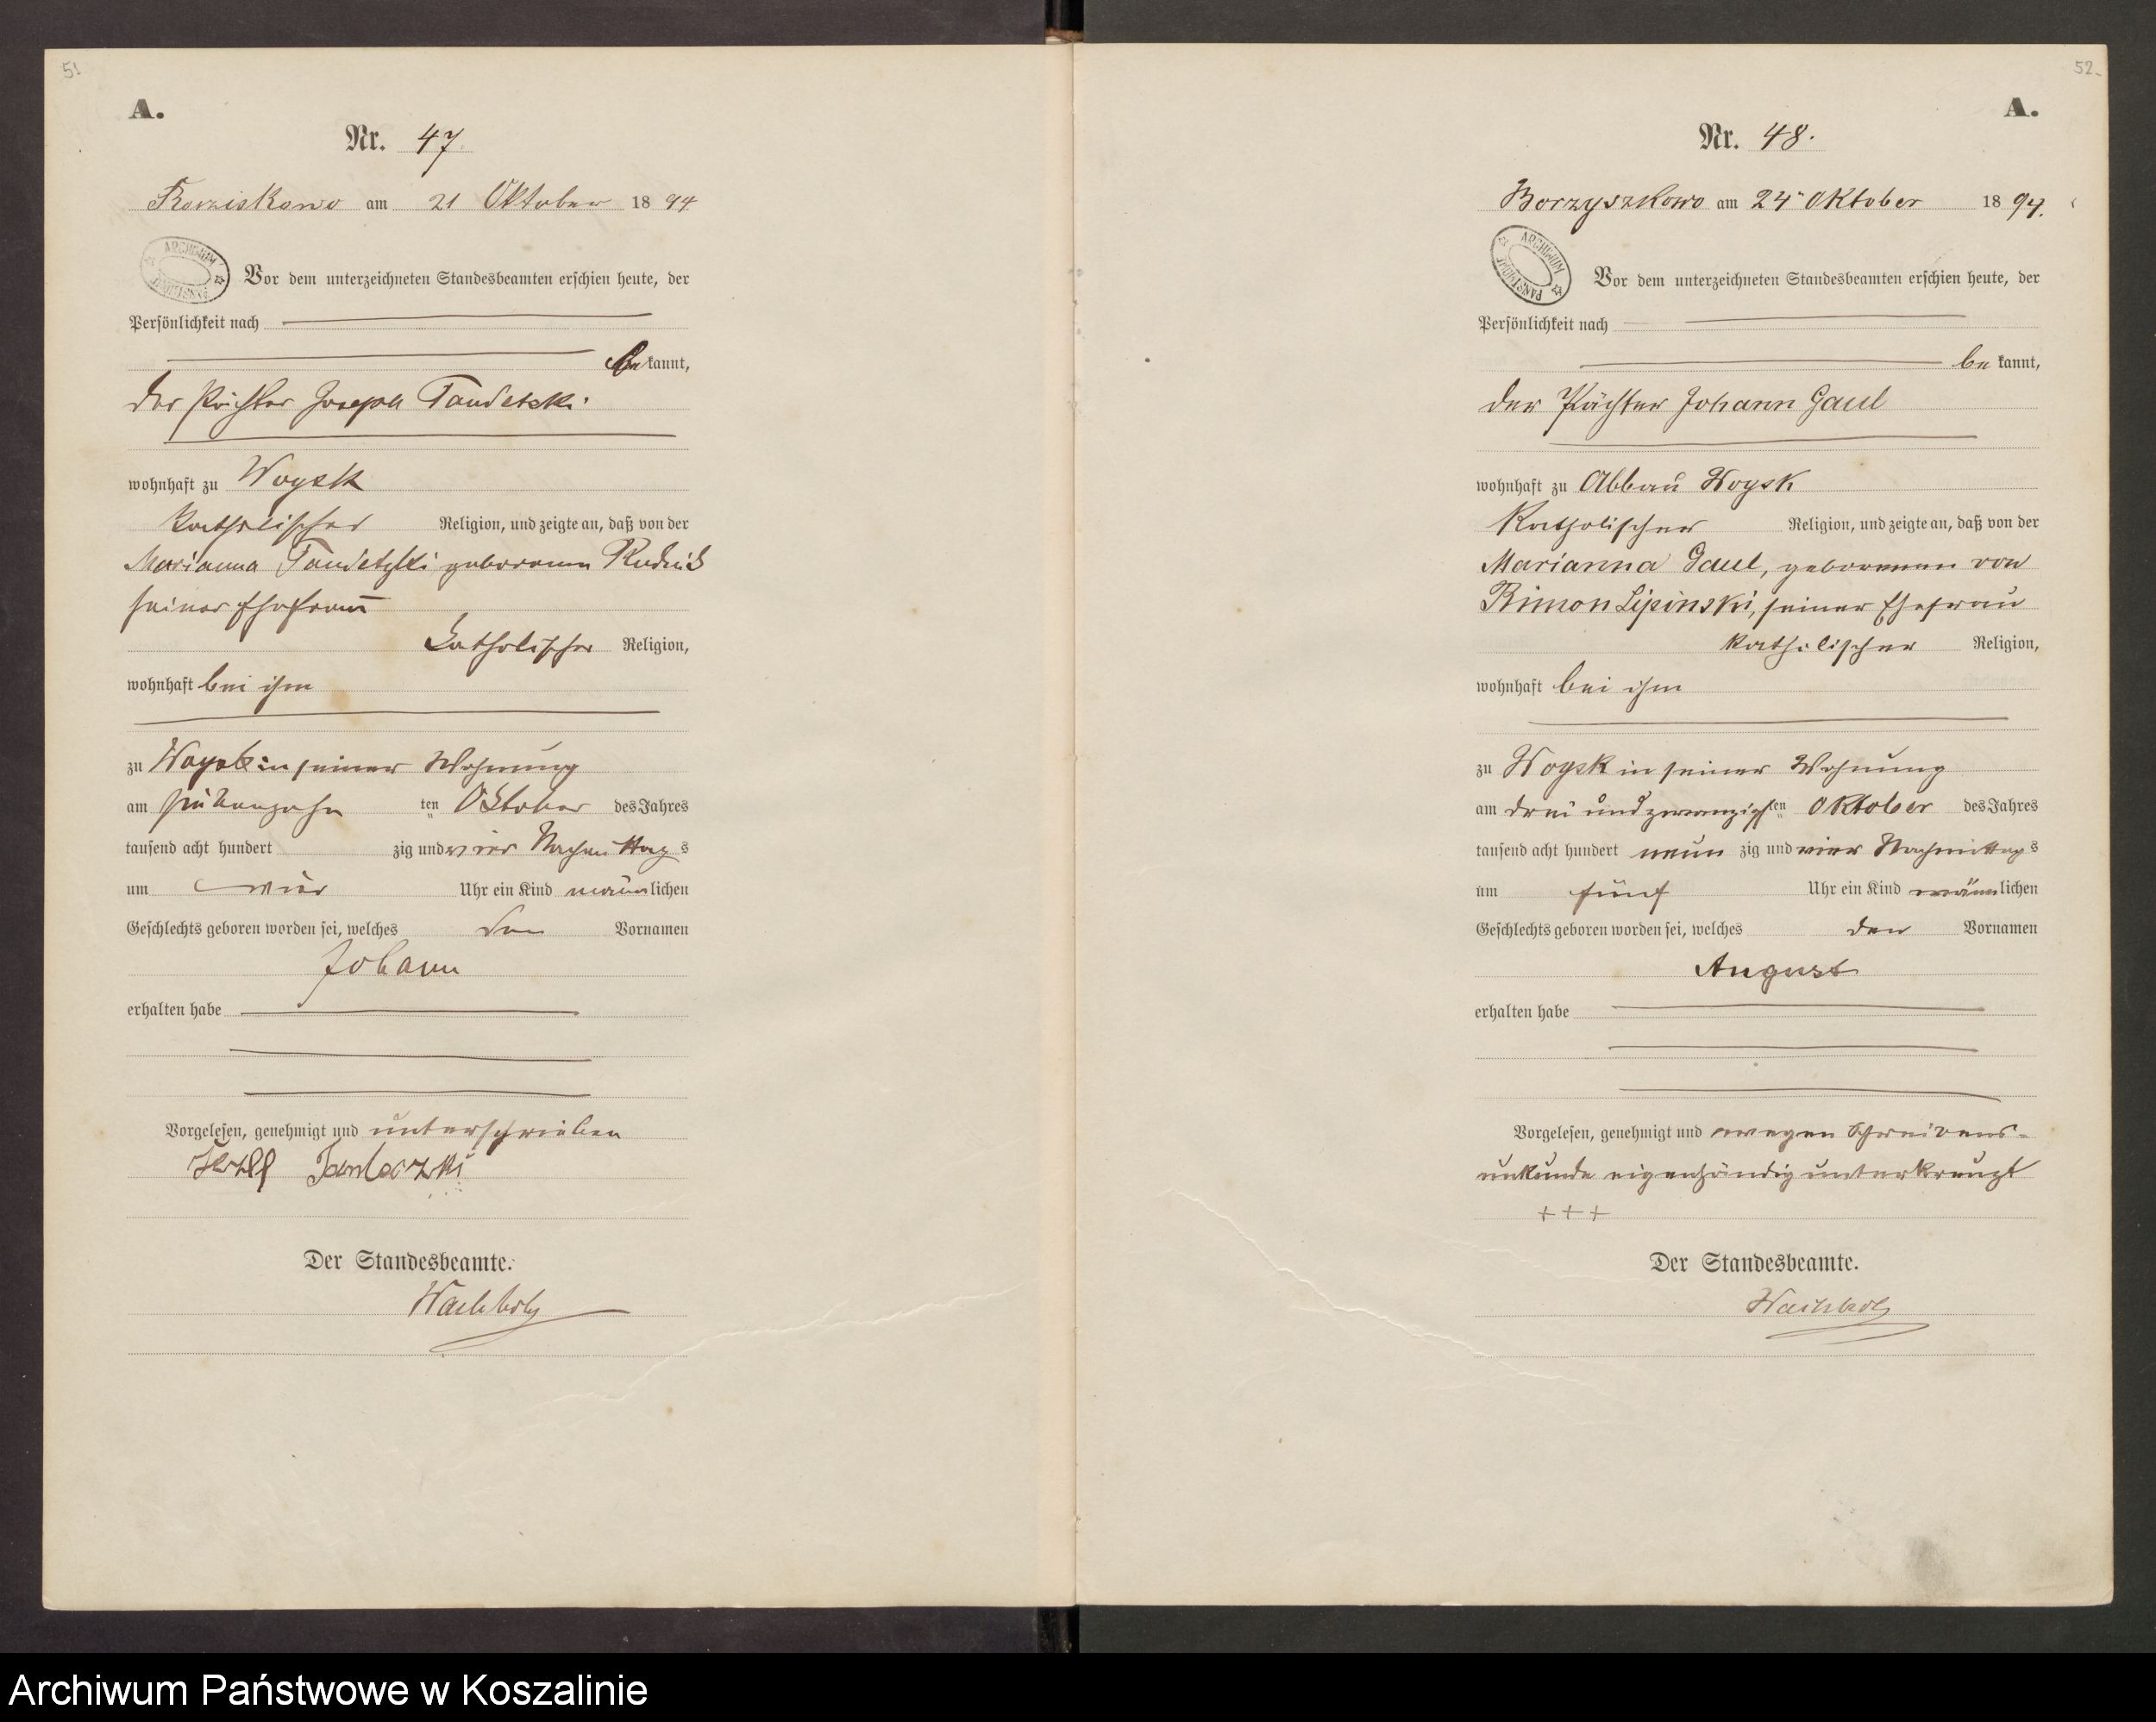 51
A.
Nr. 47.
am 21 Oktober 1894
ARCHIWUM PAŃSTWOWE
Vor dem unterzeichneten Standesbeamten erschien heute, der
Persönlichkeit nach
bekannt,
der Pächter Joseph Tandetzki
wohnhaft zu Woysk
katholischer Religion, und zeigte an, daß von der
Marianna Tandetzki geborenen Rudnik
seiner Ehefrau
katholischer Religion,
wohnhaft bei ihm
zu Woysk in seiner Wohnung
am siebenzehnten Oktober des Jahres
tausend acht hundert zig und vier Nachmittags
um vier Uhr ein Kind männlichen
Geschlechts geboren worden sei, welches den Vornamen
Johann
erhalten habe
Vorgelesen, genehmigt und unterschrieben
Der Standesbeamte.
Wachholz
52
A.
Nr. 48.
Borzyszkowo am 24 Oktober 1894.
ARCHIWUM PAŃSTWOWE
Vor dem unterzeichneten Standesbeamten erschien heute, der
Persönlichkeit nach
bekannt,
der Pächter Johann Gaul
wohnhaft zu Abbau Woysk
katholischer Religion, und zeigte an, daß von der
Marianna Gaul, geborenen von
Rimon Lipinski, seiner Ehefrau
katholischer Religion,
wohnhaft bei ihm
zu Woysk in seiner Wohnung
am drei und zwanzigsten Oktober des Jahres
tausend acht hundert neunzig und vier Nachmittags
um fünf Uhr ein Kind männlichen
Geschlechts geboren worden sei, welches den Vornamen
August
erhalten habe
Vorgelesen, genehmigt und wegen Schreibens-
unkunde eigenhändig unterkreuzt
+++
Der Standesbeamte.
Wachholz
Archiwum Państwowe w Koszalinie